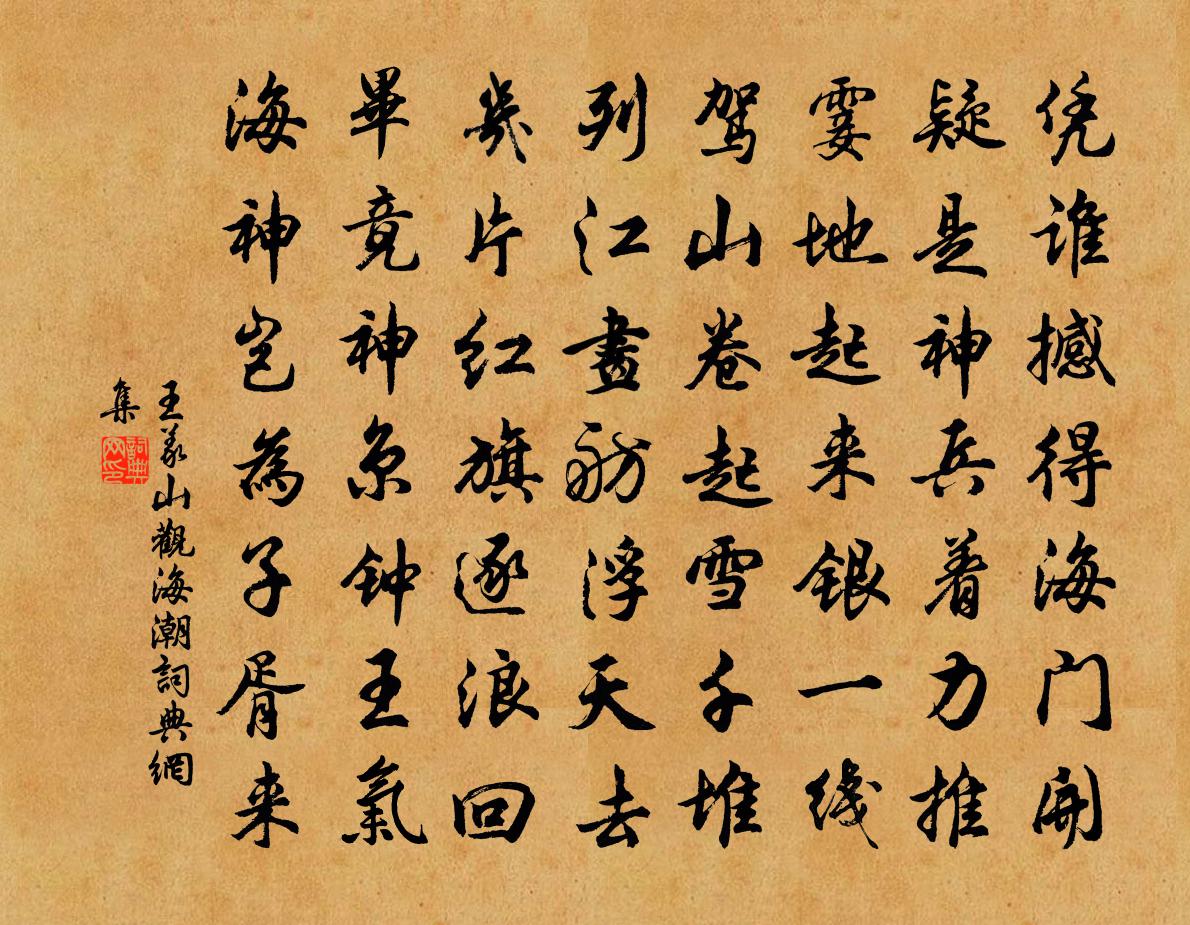 凭谁撼得海门開
疑是神兵着力推
霎地起来银一线
驾山卷起雪千堆
列江畫舫浮天去
幾片红旗逐浪回
畢竟神京钟王氣
海神岂為子胥来
王義山觀海潮詞典網
集
詞典网印